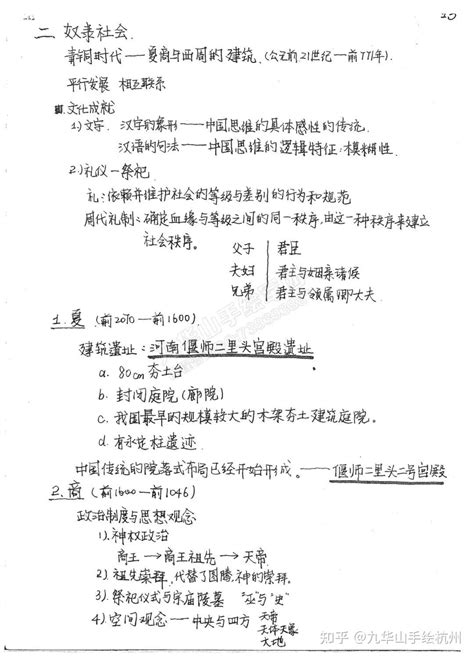 二 奴隶社会.
青铜时代——夏商与西周的建筑.(公元前21世纪—前771年).
平行发展 相互联系
文化成就
1)文字. 汉字的象形——中国思维的具体感性的传统.
汉语的句法——中国思维的逻辑特征:模糊性.
2)礼仪—祭祀
礼:依赖并维护社会的等级与差别的行为和规范
周代礼制:确定血缘与等级之间的同一秩序,由这一种秩序来建立
社会秩序。
父子 君臣
夫妇 君主与姻亲诸侯
兄弟 君主与领属卿大夫
1.夏 (前2070—前1600).
建筑遗址:河南偃师二里头宫殿遗址
a. 80cm夯土台
b. 封闭庭院(廊院)
c. 我国最早的规模较大的木架夯土建筑庭院。
d. 有永定柱遗迹
中国传统的院落式布局已经开始形成。——偃师二里头二号宫殿
2.商 (前1600—前1046)
政治制度与思想观念
1).神权政治
商王→商王祖先→天帝
2).祖先崇拜,代替了图腾,神的崇拜.
3).祭祀仪式与宗庙陵墓 "巫"与"史"
4)空间观念——中央与四方 天帝
天体天象
大地
知乎 @九华山手绘杭州